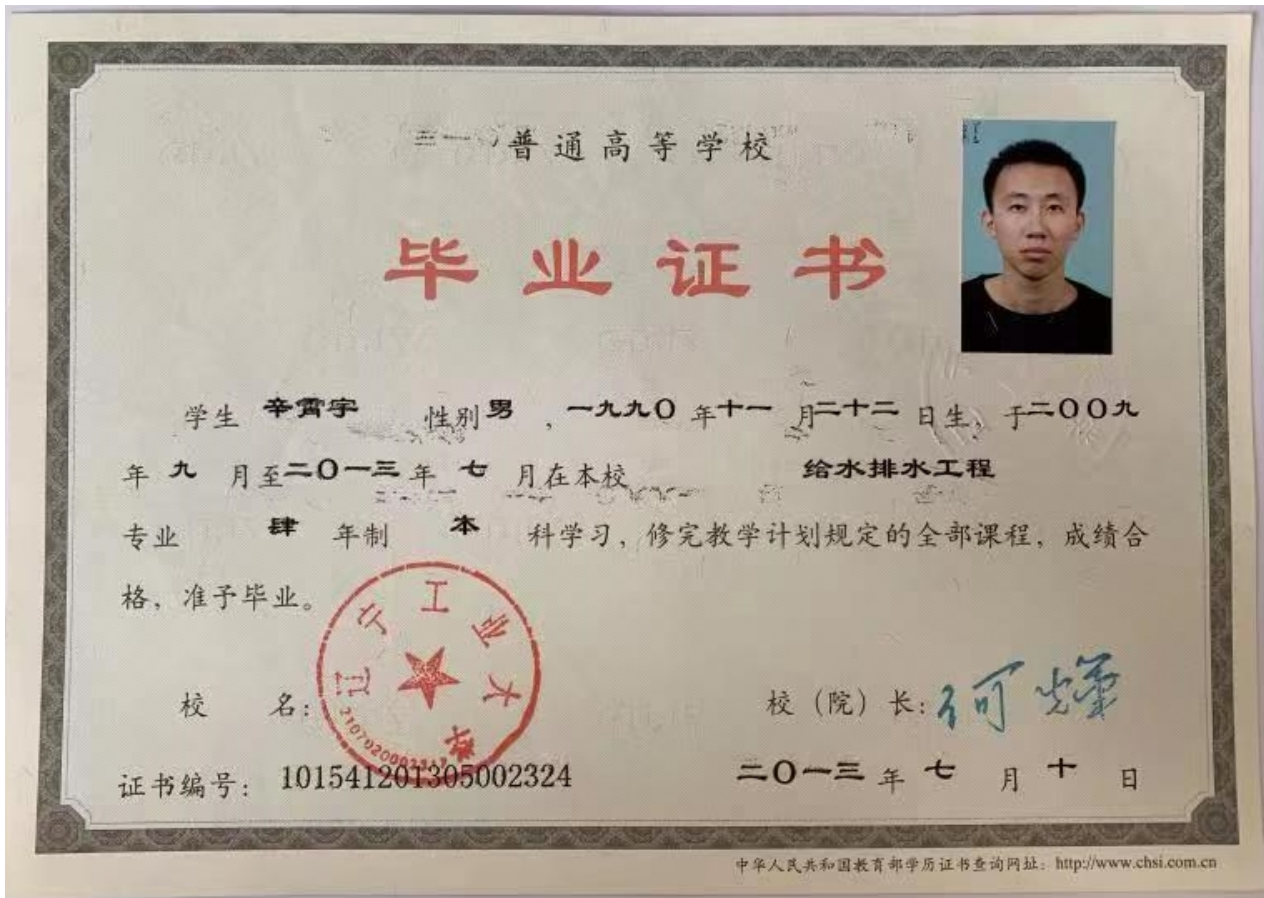 普通高等学校
毕业证书
学生 辛霄宇 性别 男 ,一九九〇年十一月二十二日生,于二〇〇九
年 九 月至二〇一三年 七 月在本校 给水排水工程
专业 肆 年制 本 科学习,修完教学计划规定的全部课程,成绩合
格,准予毕业。
辽宁工业大学
2107020002317
校 名:
校(院)长:何光耀
证书编号:101541201305002324
二〇一三年 七 月 十 日
中华人民共和国教育部学历证书查询网址:http://www.chsi.com.cn